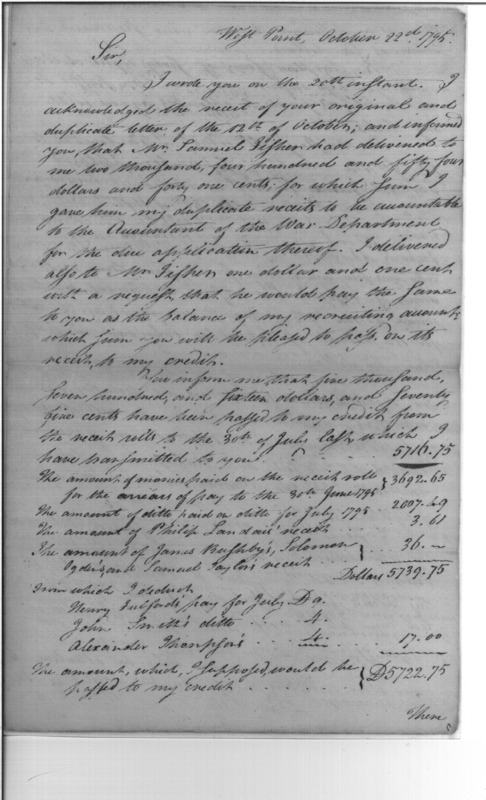 West Point, October 22d. 1795.
Sir,
I wrote you on the 20th instant. I
acknowledged the receit of your original and
duplicate letter of the 12th of October; and informed
you, that Mr. Samuel Fisher had delivered to
me two thousand, four hundred and fifty four
dollars and forty one cents for which sum I
gave him my duplicate receits to be accountable
to the Accountant of the War Department
for the due application thereof. I delivered
also to Mr Fisher one dollar and one cent
with a request that he would pay the same
to you as the balance of my recruiting account;
which sum you will be pleased to pass, on its
receit, to my credit.
You inform me that five thousand,
seven hundred, and sixteen dollars, and seventy
five cents have been passed to my credit from
the receit rolls to the 30th of July last, which I
have transmitted to you. 5716.75
The amount of monies paid on the receit roll
for the arrears of pay to the 30th June 1795 } 3692.65
The amount of ditto paid on ditto for July 1795 2007.49
The amount of Philip Landais' receit . . 3.61
The amount of James Rushby's, Solomon
Ogden's, and Samuel Taylor's receit } 36.—
Dollars 5739.75
From which I deduct
Henry Fulford's pay for July D 9.
John Smith's ditto . . . 4.
Alexander Thompson's . . 4. 17.00
The amount, which, I supposed, would be
passed to my credit . . . . . . } D5722.75
There